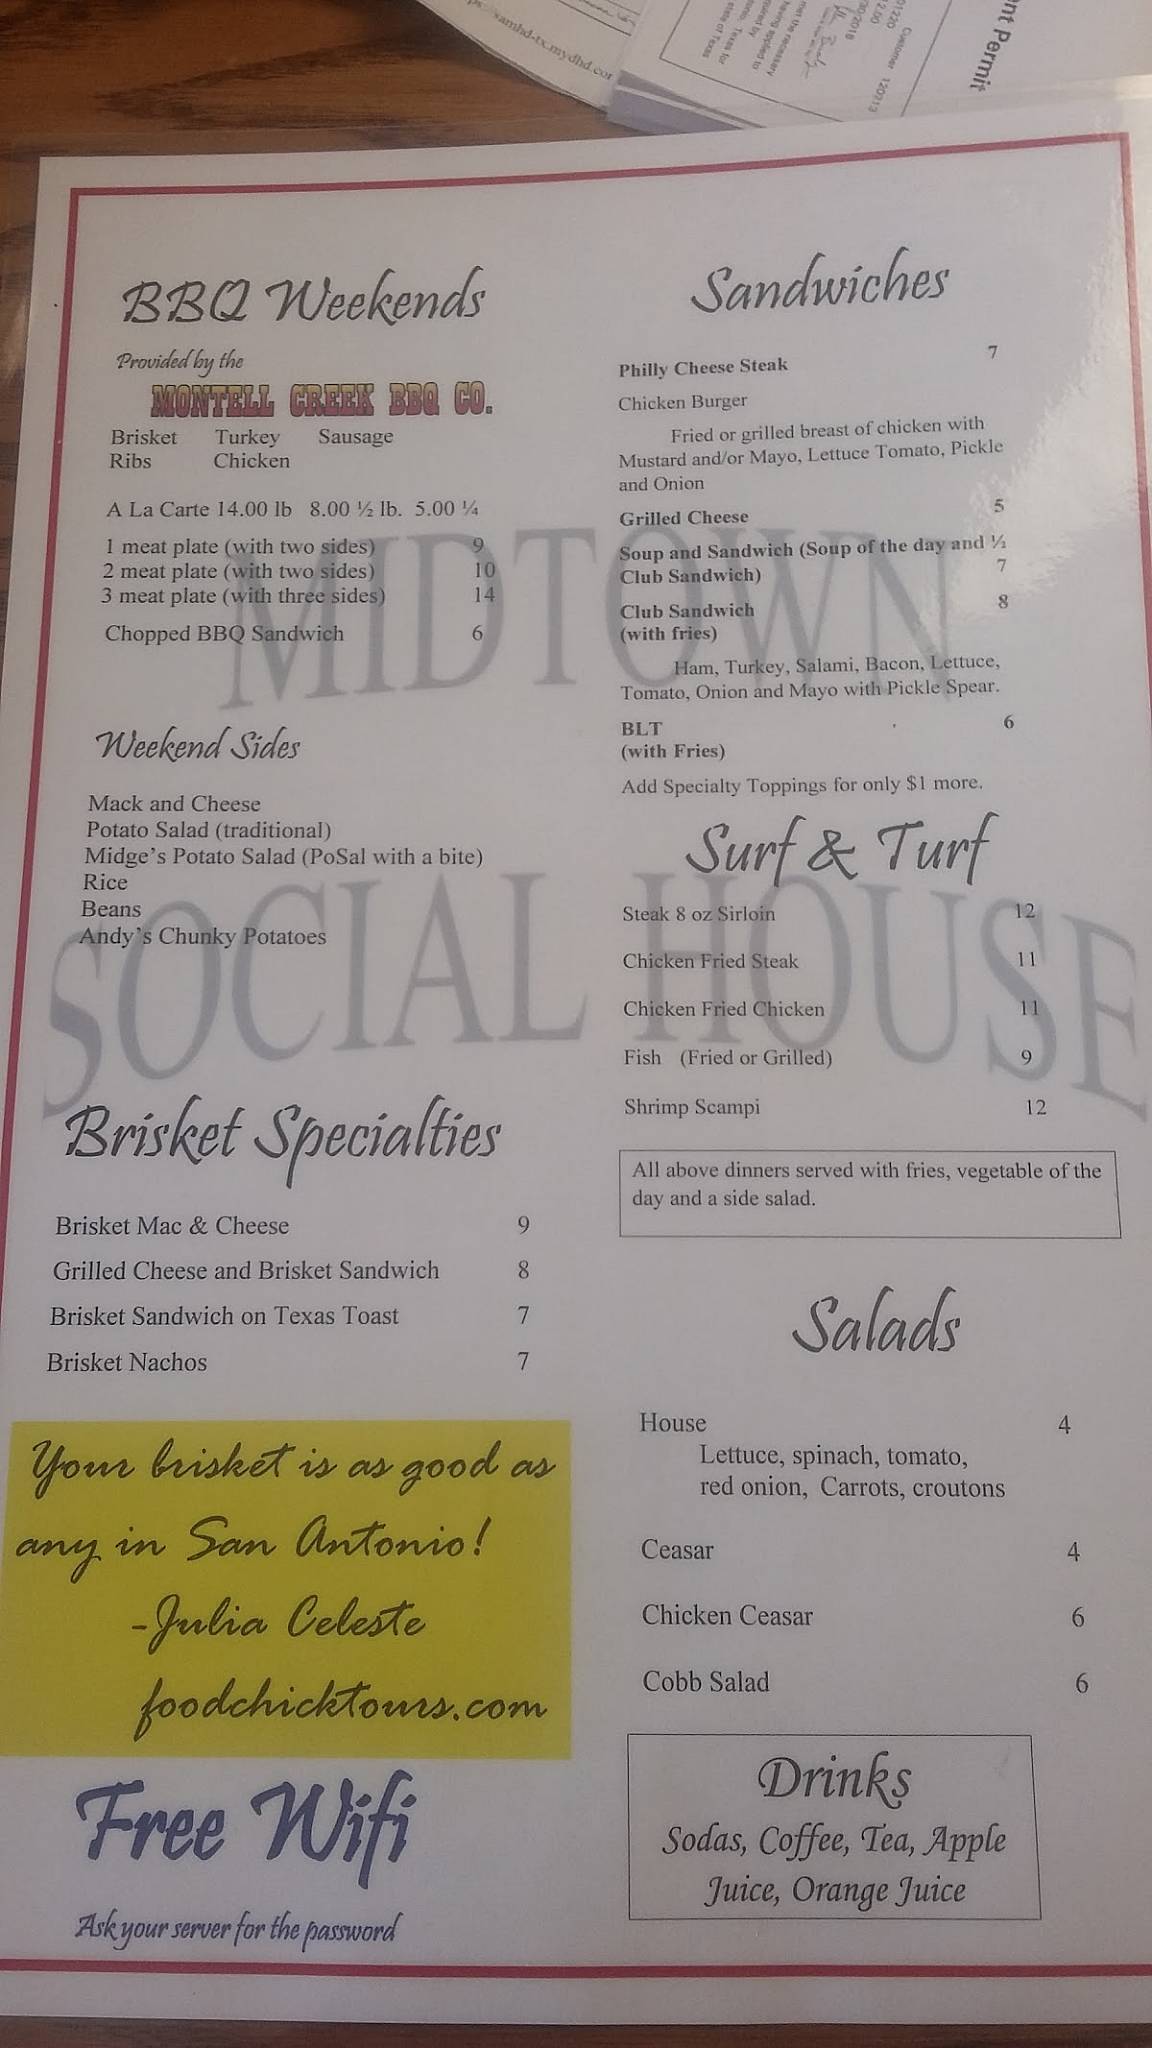 ps://samhd-tx.mydhd.com
nt Permit
Customer
BBQ Weekends
Provided by the
MONTELL CREEK BBQ CO.
Brisket Turkey Sausage
Ribs Chicken
A La Carte 14.00 lb 8.00 ½ lb. 5.00 ¼
1 meat plate (with two sides) 9
2 meat plate (with two sides) 10
3 meat plate (with three sides) 14
Chopped BBQ Sandwich 6
Weekend Sides
Mack and Cheese
Potato Salad (traditional)
Midge's Potato Salad (PoSal with a bite)
Rice
Beans
Andy's Chunky Potatoes
Brisket Specialties
Brisket Mac & Cheese 9
Grilled Cheese and Brisket Sandwich 8
Brisket Sandwich on Texas Toast 7
Brisket Nachos 7
Your brisket is as good as
any in San Antonio!
-Julia Celeste
foodchicktours.com
Free Wifi
Ask your server for the password
MIDTOWN
SOCIAL HOUSE
Sandwiches
Philly Cheese Steak 7
Chicken Burger
Fried or grilled breast of chicken with
Mustard and/or Mayo, Lettuce Tomato, Pickle
and Onion
Grilled Cheese 5
Soup and Sandwich (Soup of the day and ½
Club Sandwich) 7
Club Sandwich 8
(with fries)
Ham, Turkey, Salami, Bacon, Lettuce,
Tomato, Onion and Mayo with Pickle Spear.
BLT 6
(with Fries)
Add Specialty Toppings for only $1 more.
Surf & Turf
Steak 8 oz Sirloin 12
Chicken Fried Steak 11
Chicken Fried Chicken 11
Fish (Fried or Grilled) 9
Shrimp Scampi 12
All above dinners served with fries, vegetable of the
day and a side salad.
Salads
House 4
Lettuce, spinach, tomato,
red onion, Carrots, croutons
Ceasar 4
Chicken Ceasar 6
Cobb Salad 6
Drinks
Sodas, Coffee, Tea, Apple
Juice, Orange Juice